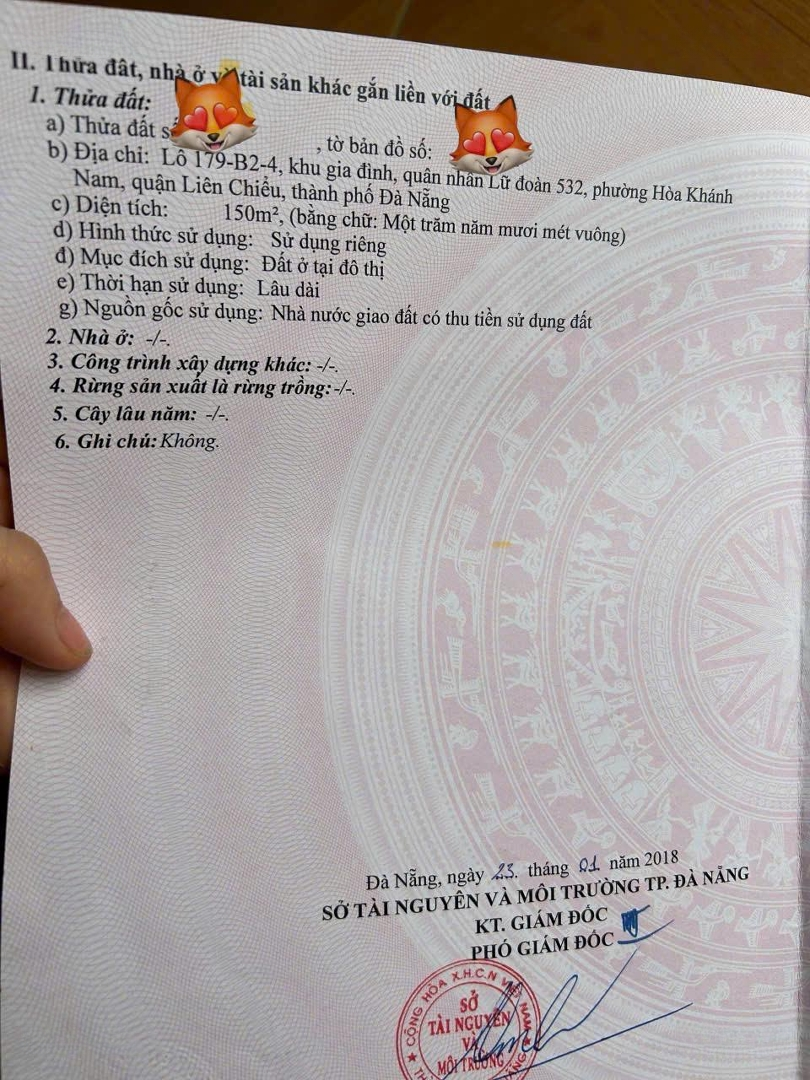 II. Thửa đất, nhà ở và tài sản khác gắn liền với đất
1. Thửa đất:
a) Thửa đất số , tờ bản đồ số:
b) Địa chỉ: Lô 179-B2-4, khu gia đình, quân nhân Lữ đoàn 532, phường Hòa Khánh
Nam, quận Liên Chiểu, thành phố Đà Nẵng
c) Diện tích: 150m², (bằng chữ: Một trăm năm mươi mét vuông)
d) Hình thức sử dụng: Sử dụng riêng
đ) Mục đích sử dụng: Đất ở tại đô thị
e) Thời hạn sử dụng: Lâu dài
g) Nguồn gốc sử dụng: Nhà nước giao đất có thu tiền sử dụng đất
2. Nhà ở: -/-.
3. Công trình xây dựng khác: -/-.
4. Rừng sản xuất là rừng trồng: -/-.
5. Cây lâu năm: -/-.
6. Ghi chú: Không.
Đà Nẵng, ngày 23. tháng 01. năm 2018
SỞ TÀI NGUYÊN VÀ MÔI TRƯỜNG TP. ĐÀ NẴNG
KT. GIÁM ĐỐC
PHÓ GIÁM ĐỐC
CỘNG HÒA X.H.C.N VIỆT NAM
SỞ
TÀI NGUYÊN
VÀ
MÔI TRƯỜNG